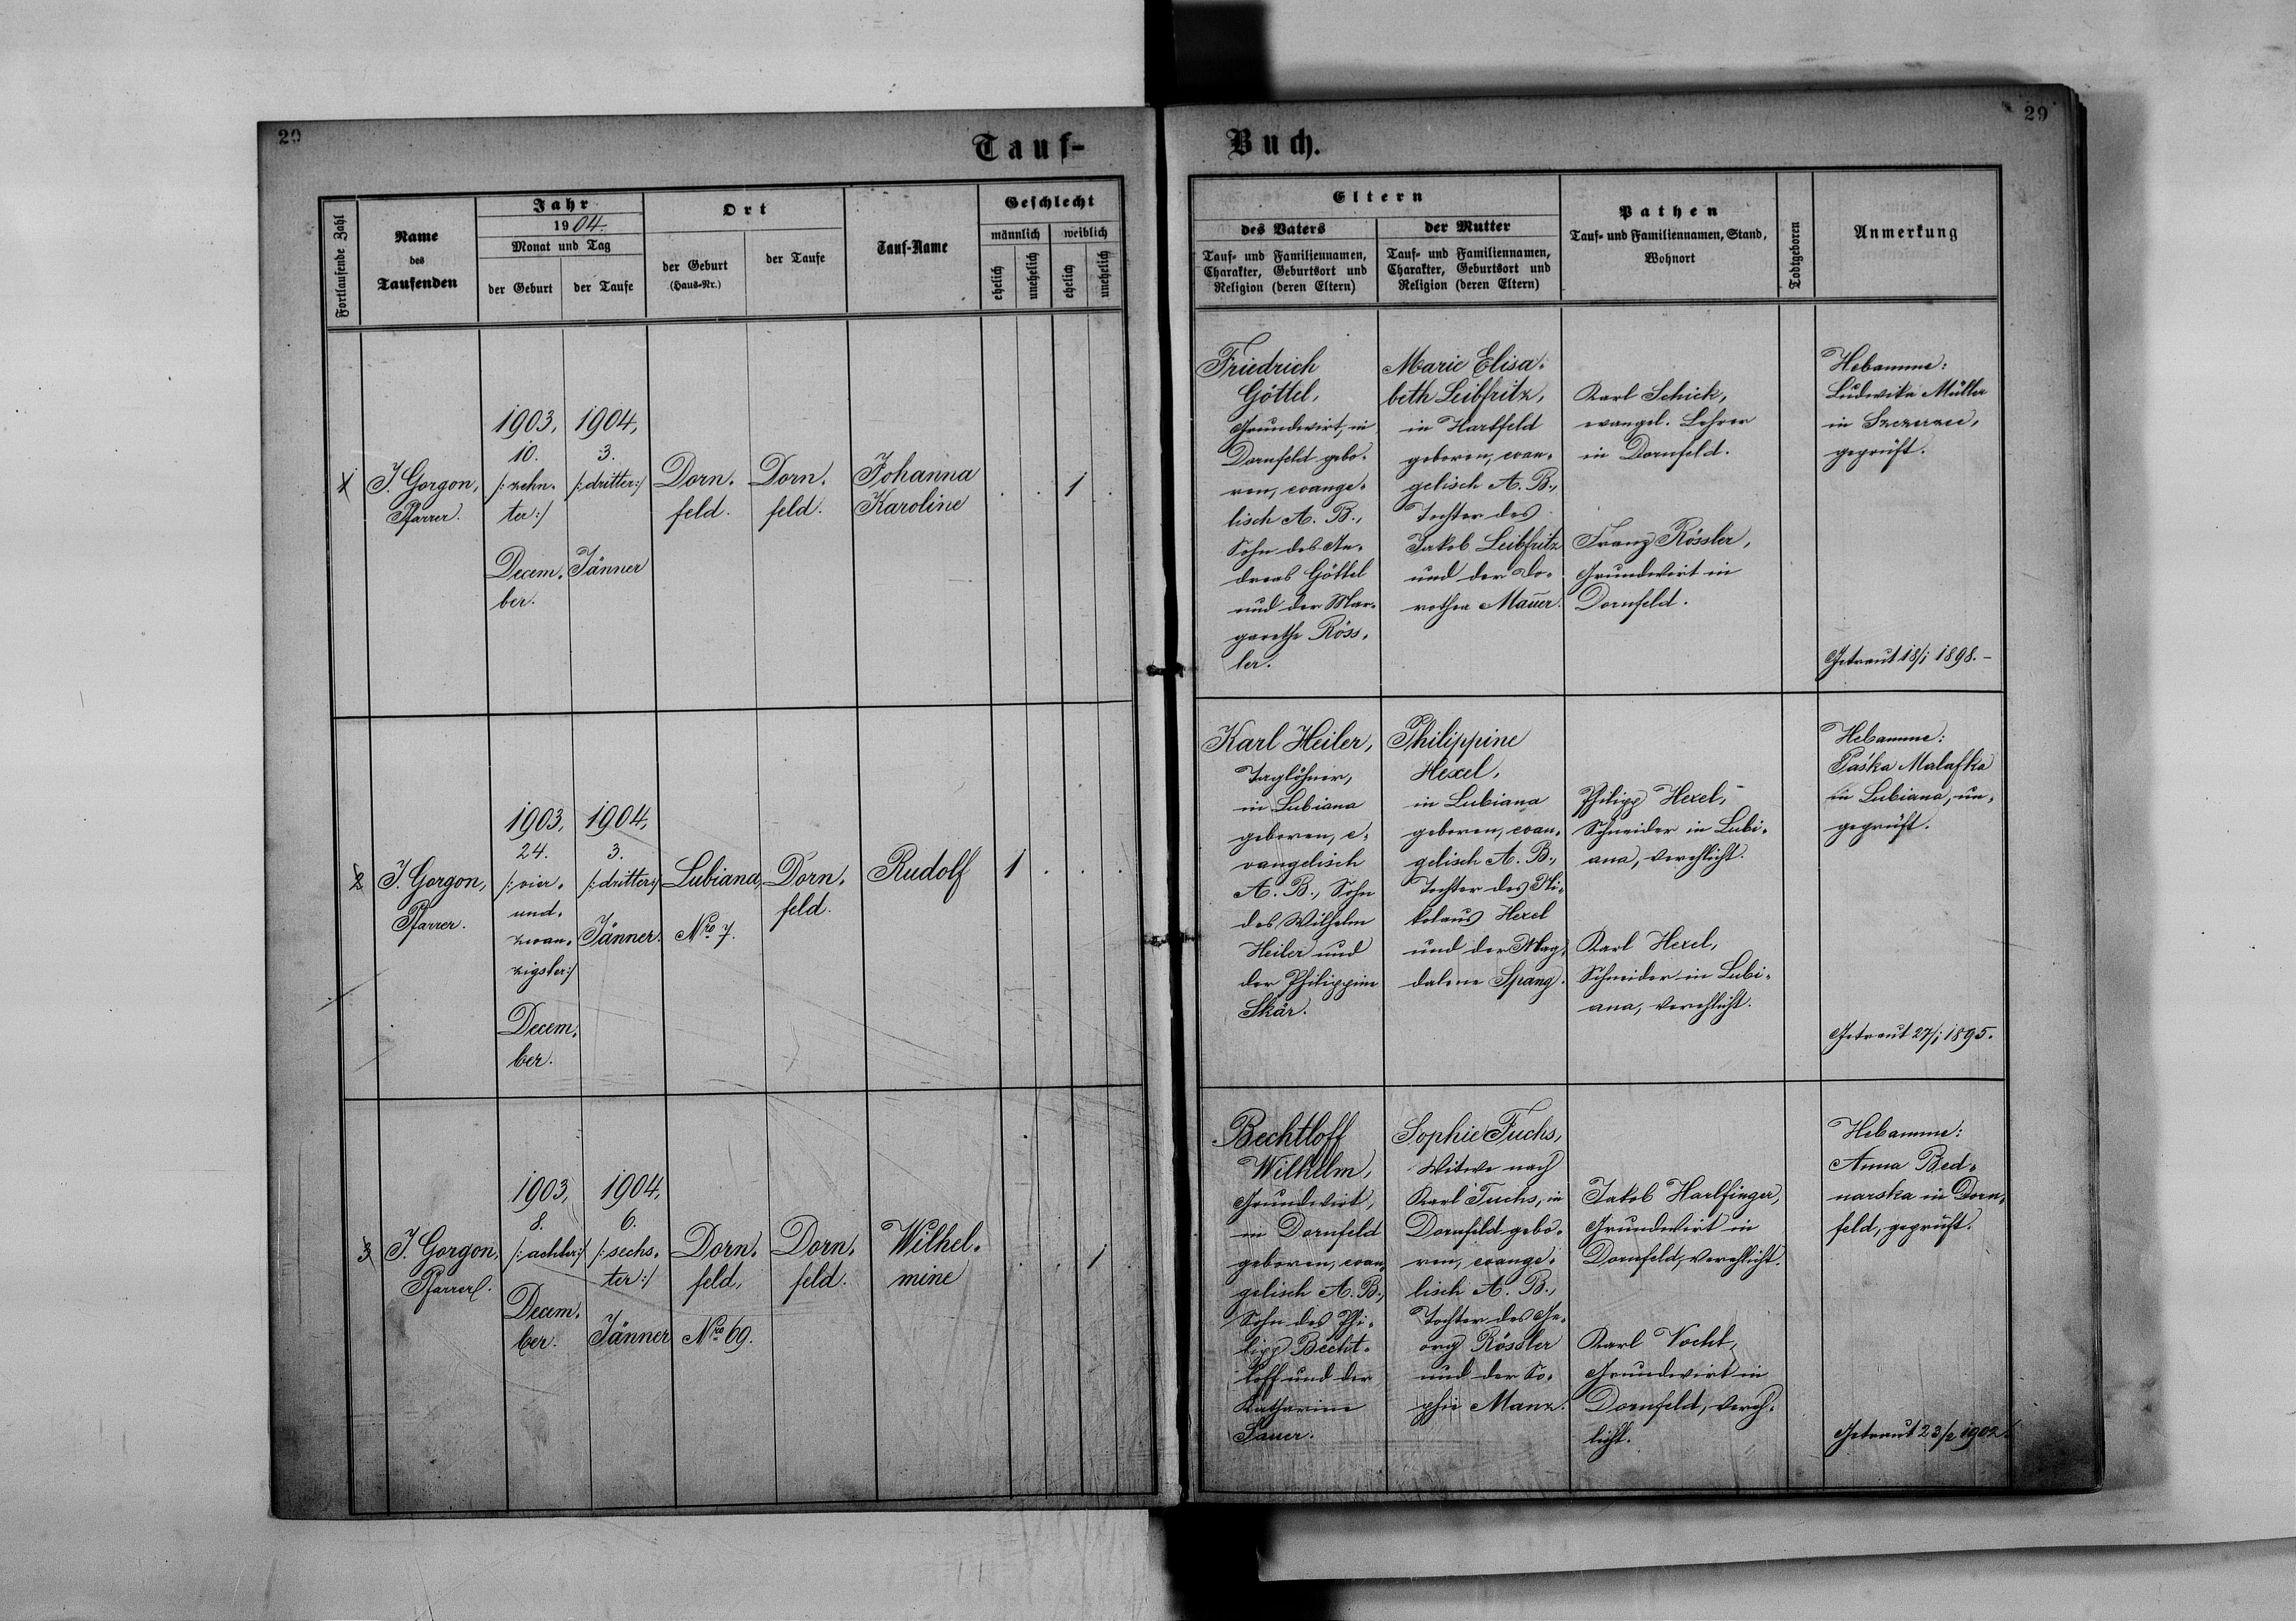 29
29
Tauf-
Buch.
Fortlaufende Zahl
Name
des
Taufenden
Jahr
1904.
Monat und Tag
der Geburt
der Taufe
Ort
der Geburt
(Haus-Nr.)
der Taufe
Tauf-Name
Geschlecht
männlich
weiblich
ehelich
unehelich
ehelich
unehelich
Eltern
des Vaters
Tauf- und Familiennamen,
Charakter, Geburtsort und
Religion (deren Eltern)
der Mutter
Tauf- und Familiennamen,
Charakter, Geburtsort und
Religion (deren Eltern)
Pathen
Tauf- und Familiennamen, Stand,
Wohnort
Todtgeboren
Anmerkung
1
J. Gorgon,
Pfarrer.
1903,
10.
/:zehn-
ter:/
Decem-
ber.
1904,
3.
/:dritter:/
Jänner
Dorn-
feld.
Dorn-
feld.
Johanna
Karoline
. . 1 .
Friedrich
Göttel,
Grundwirt, in
Dornfeld gebo-
ren, evange-
lisch A. B.,
Sohn des An-
dreas Göttel
und der Mar-
garethe Röss-
ler.
Marie Elisa-
beth Leibfritz,
in Hartfeld
geboren, evan-
gelisch A. B.,
Tochter des
Jakob Leibfritz
und der Do-
rothea Mauer.
Karl Schick,
evangel. Lehrer
in Dornfeld.
Franz Rössler,
Grundwirt in
Dornfeld.
Hebamme:
Ludwika Müller
in Szczerzec,
geprüft.
Getraut 18/1 1898.-
2
J. Gorgon,
Pfarrer.
1903,
24.
/:vier-
und-
zwan-
zigster:/
Decem-
ber.
1904,
3.
/:dritter:/
Jänner.
Lubiana,
Nro 7.
Dorn-
feld.
Rudolf
1 . . .
Karl Heiler,
Taglöhner,
in Lubiana
geboren, e-
vangelisch
A. B., Sohn
des Wilhelm
Heiler und
der Philippine
Skär.
Philippine
Hexel,
in Lubiana
geboren, evan-
gelisch A. B.,
Tochter des Ni-
kolaus Hexel
und der Mag-
dalene Spang.
Philipp Hexel,
Schneider in Lubi-
ana, verehlicht.
Karl Hexel,
Schneider in Lubi-
ana, verehlicht.
Hebamme:
Paśka Malafka
in Lubiana, un-
geprüft.
Getraut 27/1 1895.
3
J. Gorgon,
Pfarrer.
1903,
8.
/:achter:/
Decem-
ber.
1904,
6.
/:sechs-
ter:/
Jänner
Dorn-
feld,
Nro 69.
Dorn-
feld.
Wilhel-
mine
. . 1 .
Bechtloff
Wilhelm,
Grundwirt,
in Dornfeld
geboren, evan-
gelisch A. B.,
Sohn des Phi-
lipp Becht-
loff und der
Katharine
Sauer.
Sophie Fuchs,
Witwe nach
Karl Fuchs, in
Dornfeld gebo-
ren, evange-
lisch A. B.,
Tochter des Ge-
org Rössler
und der So-
phie Manz.
Jakob Harlfinger,
Grundwirt in
Dornfeld, verehlicht.
Karl Vocht,
Grundwirt in
Dornfeld, vereh-
licht.
Hebamme:
Anna Bed-
narska in Dorn-
feld, geprüft.
Getraut 23/2 1902.